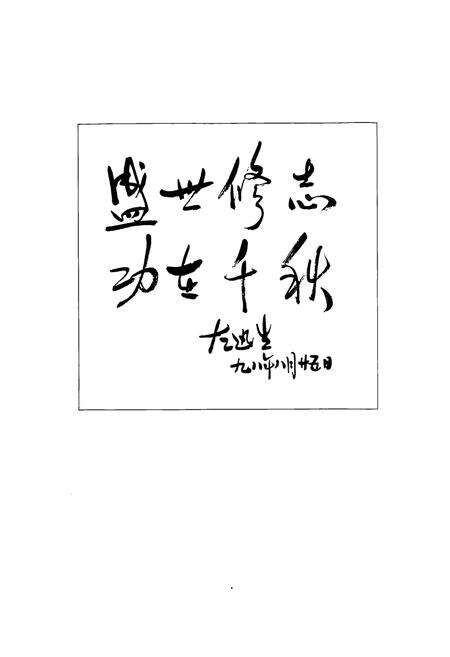 盛世修志
功在千秋
左迅生
九八年八月廿五日